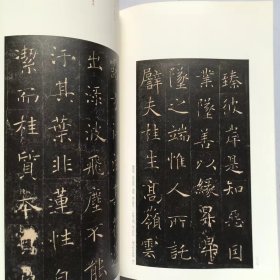 臻彼岸是知惡因
業墜善以緣昇昇
墜之端惟人所託
譬夫桂生高嶺雲
出淥波飛塵不能
汙其葉非蓮性自
潔而桂質本貞